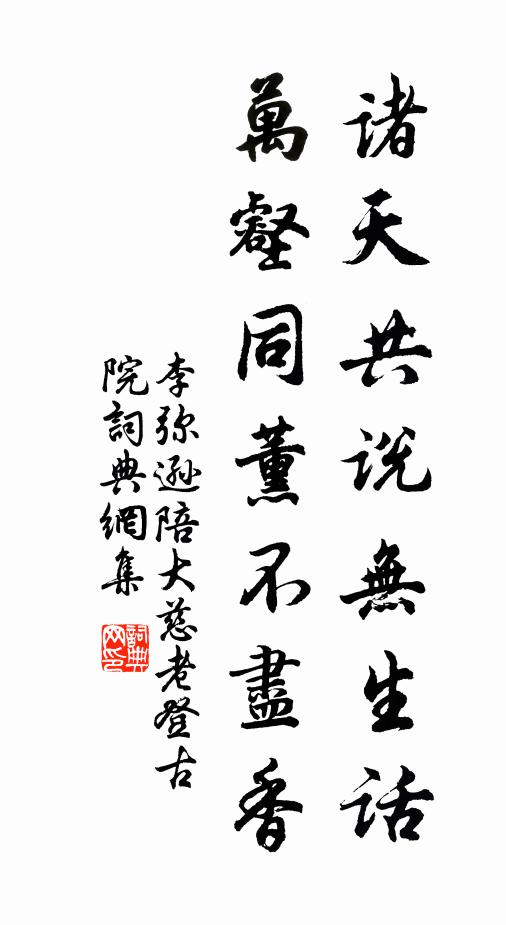 诸天共说無生話
萬壑同薰不盡香
李弥遜陪大慈老登古
院詞典網集
詞典
网印